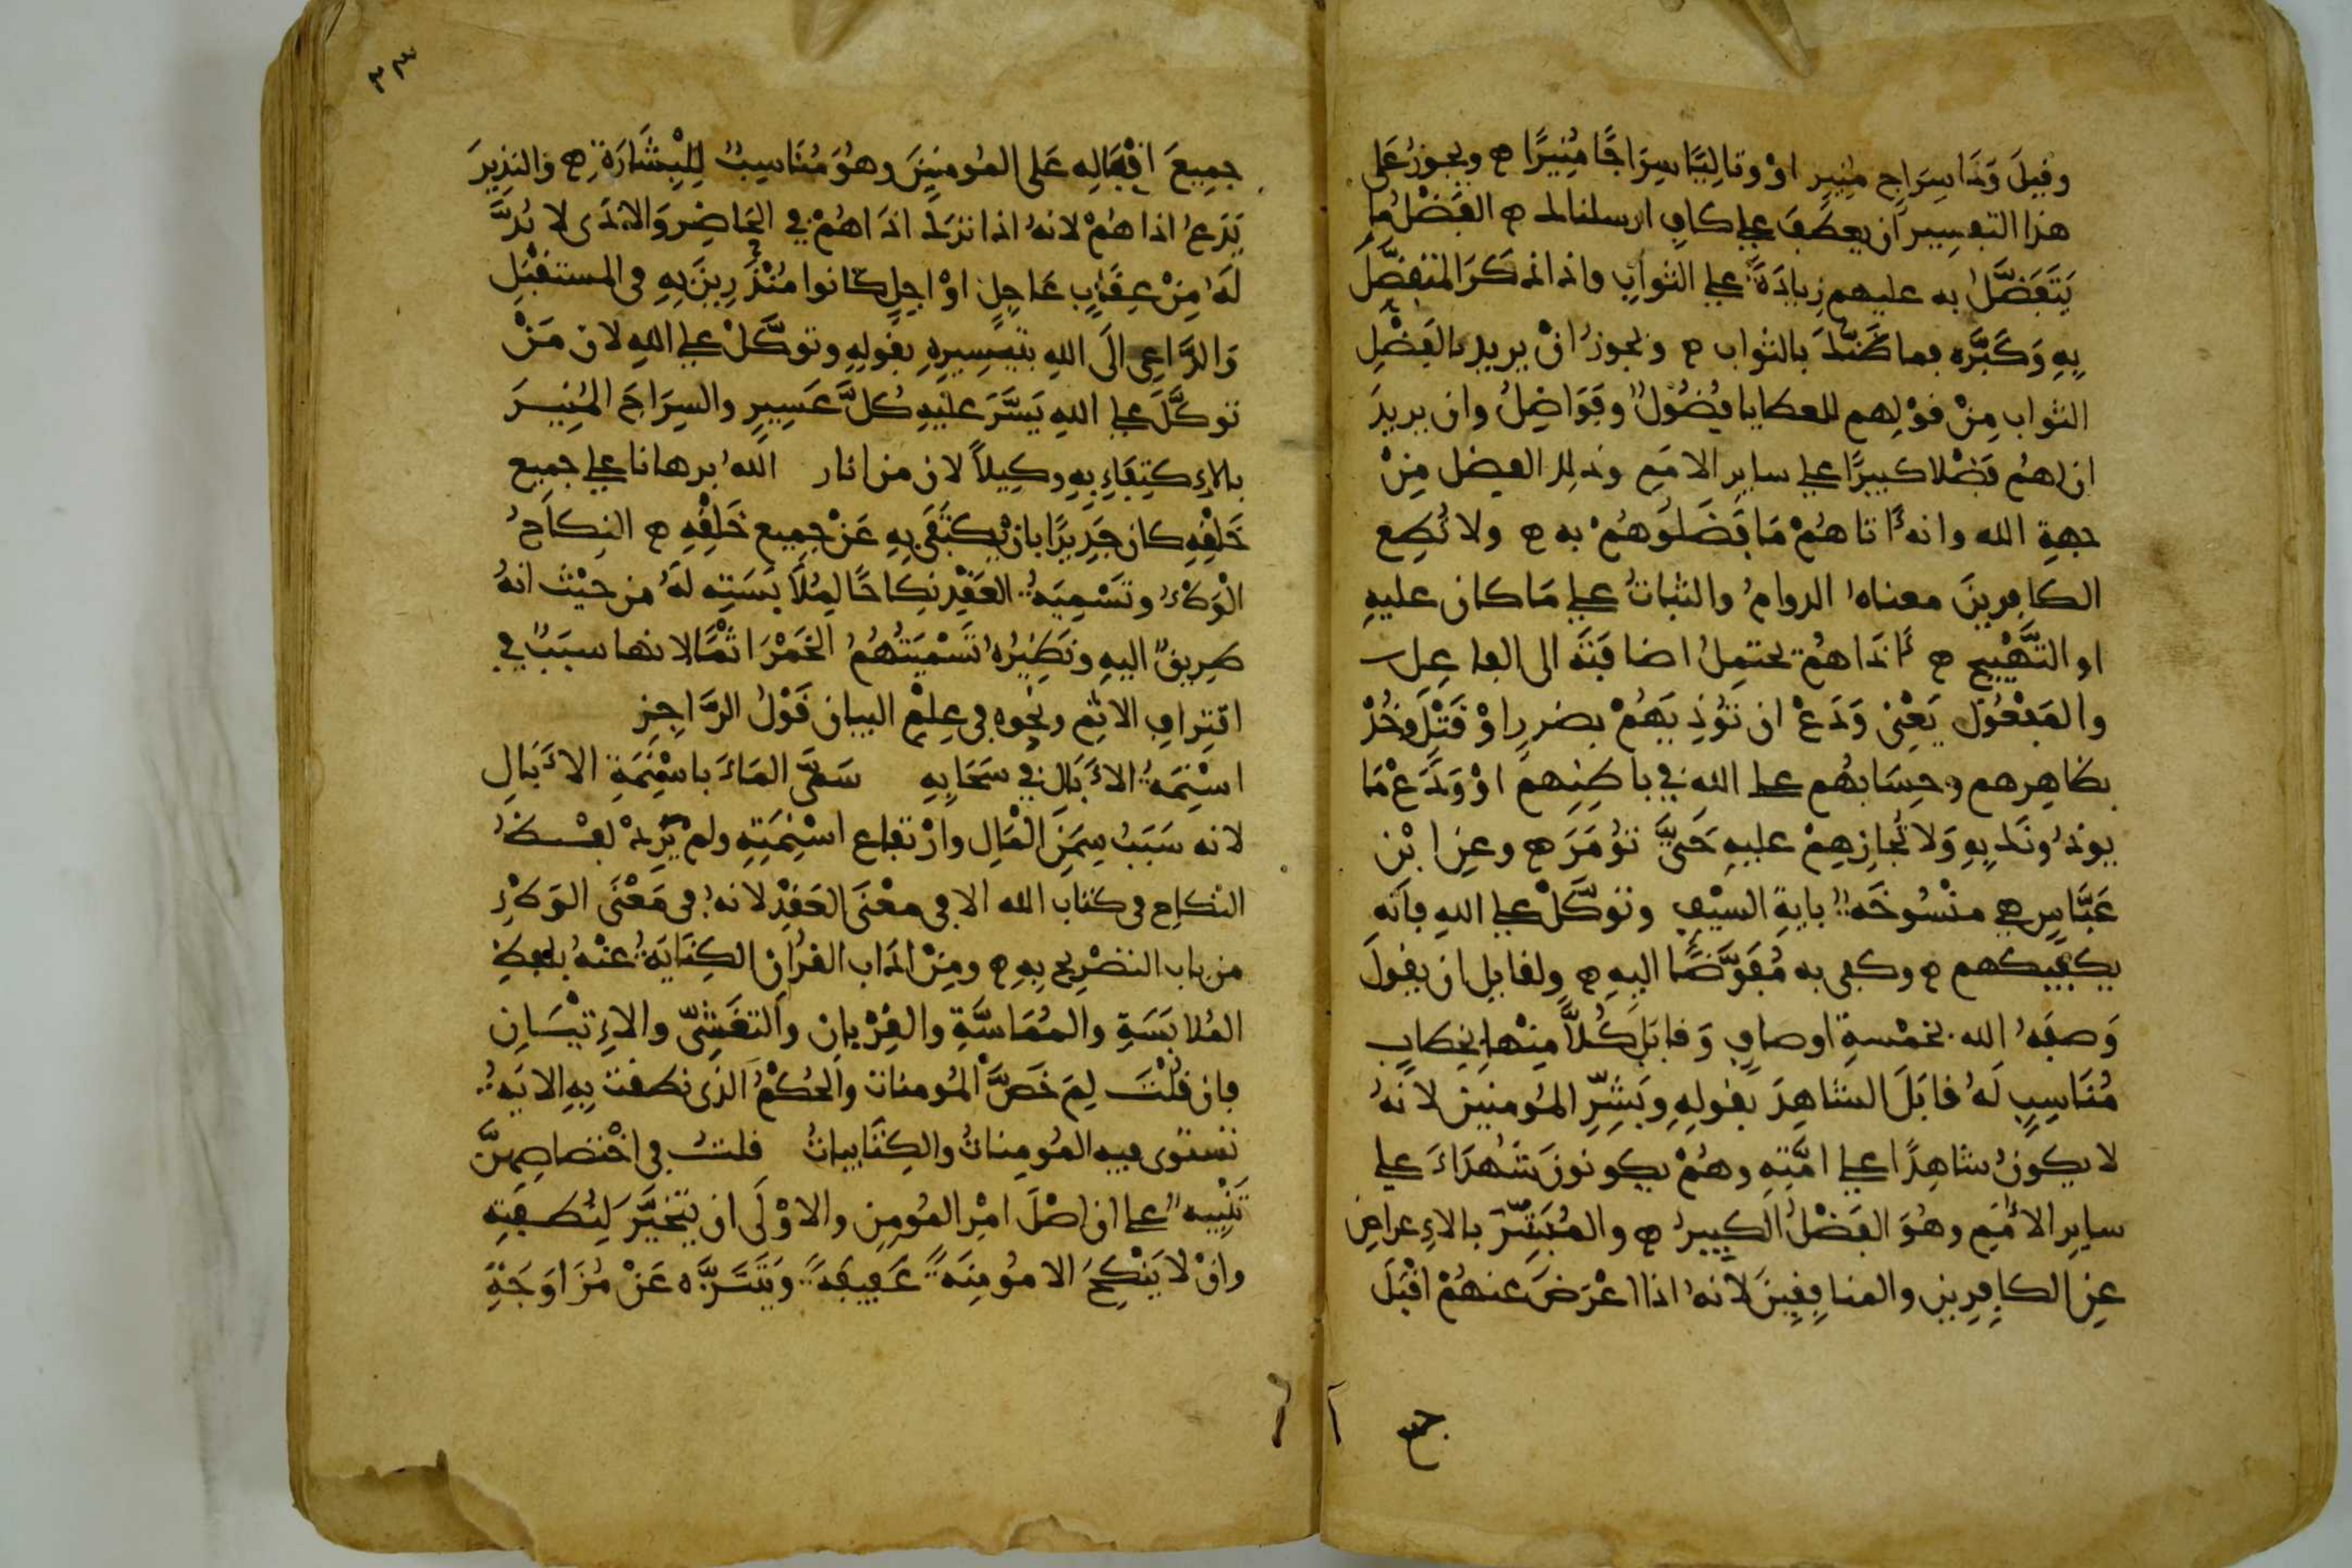 وقيلَ وَذَا سِرَاجٍ مُنِيرٍ اوْ وتالِيًا سِرَاجًا مُنِيرًا ه ويجوزُ عَلى
هذا التفسير ان يعطَفَ على كافِ ارسلناك ه الفَضْلُ ما
يَتَفَضَّلُ به عليهم زِيادَةً على الثوابِ واذا ذكَرَ المتفضَّلَ
بِهِ وَكَبَّره فما ظَنُّكَ بالثواب ه ويجوزُ انْ يريد بالفَضْلِ
الثواب مِنْ قوْلِهم للعطايا فُضُولٌ وفَوَاضِلُ وان يريدَ
ان لهم فَضْلا كبيرًا على سايرِ الامَمِ وذلك الفضل مِنْ
جهةِ الله وانه آتاهُمْ مَا فَضَلُوهُمْ به ه ولا تُطِعِ
الكافرينَ معناه الدوامُ والثباتُ على مَا كان عليهِ
او التَّهْيِيج ه أذَاهُمْ يحتمِلُ اضافَتَه الى الفاعِلِ
والمَفْعُول يَعْنِى وَدَعْ ان تُؤذِيَهُمْ بضررٍ اوْ قَتْلٍ وخُذْ
بظاهِرِهم وحِسَابُهُم على اللهِ في باطِنِهِم اوْ وَدَعْ مَا
يوذُونَك بِهِ وَلا تُجازِهِمْ عليهِ حَتَّى تُؤمَرَ ه وعنِ ابْنِ
عَبَّاسٍ هى مَنْسُوخَةٌ بايةِ السيْفِ وتوَكَّلْ على اللهِ فإنَّه
يكفيكهم ه وكفى به مُفَوَّضًا اليهِ ه ولقايلٍ ان يقولَ
وَصفَهُ الله بخمْسةِ اوصافٍ وَقابَلَ كُلاًّ مِنْها بخطابٍ
مُنَاسِبٍ لَهُ قابَلَ الشاهِدَ بقولِهِ وبَشِّرِ المؤمنينَ لانَهُ
لا يكونُ شاهِدًا على امَّتِهِ وهُمْ يكونونَ شُهَدَاءَ على
سايرِ الأمَمِ وهُوَ الفَضْلُ الكبيرُ ه والمُبَشِّرَ بالاِعراضِ
عنِ الكافِرِين والمنافِقِينَ لانهُ اذا اعْرَضَ عنهُمْ اقْبَلَ
جمع
٢٣
جمِيعَ اقْبَالِهِ عَلى المؤمنِينَ وهوَ مُنَاسِبٌ لِلْبِشَارَةِ ه والنذِيرَ
بِدَعْ اذاهُمْ لانهُ اذا تركَ اذَاهُمْ في الحَاضِرِ وَالاذَى لا بُدَّ
لَهُ مِنْ عِقَابٍ عَاجِلٍ اوْ اجِلٍ كانوا مُنْذَرِينَ بِهِ فى المستقْبَلِ
وَالدَّاعِى الَى اللهِ بتيسِيرِهِ بقولِهِ وتوَكَّلْ على اللهِ لان مَنْ
توكَّلَ على اللهِ يَسَّرَ عليْهِ كُلَّ عَسِيرٍ والسِرَاجَ المُنِيرَ
بالاِكتِفاءِ بهِ وكِيلاً لان من انار اللهُ برهانا على جميع
خَلْقِهِ كان جَدِيرًا بانْ يُكتَفَى بِهِ عَنْ جمِيعِ خَلقِهِ ه النِكاحُ
الْوَطْءُ وتَسْمِيَةُ العَقْدِ نِكاحًا لِمُلاَبَسَتِهِ لَهُ من حيْثُ انهُ
طرِيقٌ اليهِ ونَظِيرُهُ تَسْمِيَتُهُمُ الخَمْرَ اثْمًا لانها سبَبٌ في
اقترافِ الاثمِ ونحوه فى عِلْمِ البيان قَوْلُ الرَّاجِزِ
اسْنِمَةُ الاَبَالِ في سَحَابِهِ سَمَّى المَاءَ باسْنِمَةِ الاَبَالِ
لانه سَبَبُ سِمَنِ الْمَالِ وارْتفاعِ اسْنِمَتِهِ ولم يَرِدْ لفْظُ
النكاحِ فى كتاب الله الا فى معْنَى العَقْدِ لانهُ فى مَعْنَى الوَطْءِ
من باب التصْرِيحِ بِهِ ه ومِنْ اداب القرْانِ الكِنَايَةُ عنْهُ بلفظِ
المُلابَسَةِ والمُمَاسَّةِ والقِرْبانِ والتغَشِّى والاِتيْانِ
فان قلْتَ لِمَ خَصَّ المُؤمناتِ والحُكْمُ الذى نطقتْ بِهِ الايَةُ
تستوى فيهِ المُؤمِناتُ والكِتَابياتُ قلتُ فى اخْتصاصِهِنَّ
تَنْبِيهٌ على ان اصْلَ امْرِ المُومِنِ والاوْلَى ان يتخيَّرَ لِنُطفتِهِ
وانْ لا يَنْكِحَ الا مُؤمِنَةً عَفِيفَةً وَيَتَنَزَّه عَنْ مُزَاوَجَةِ